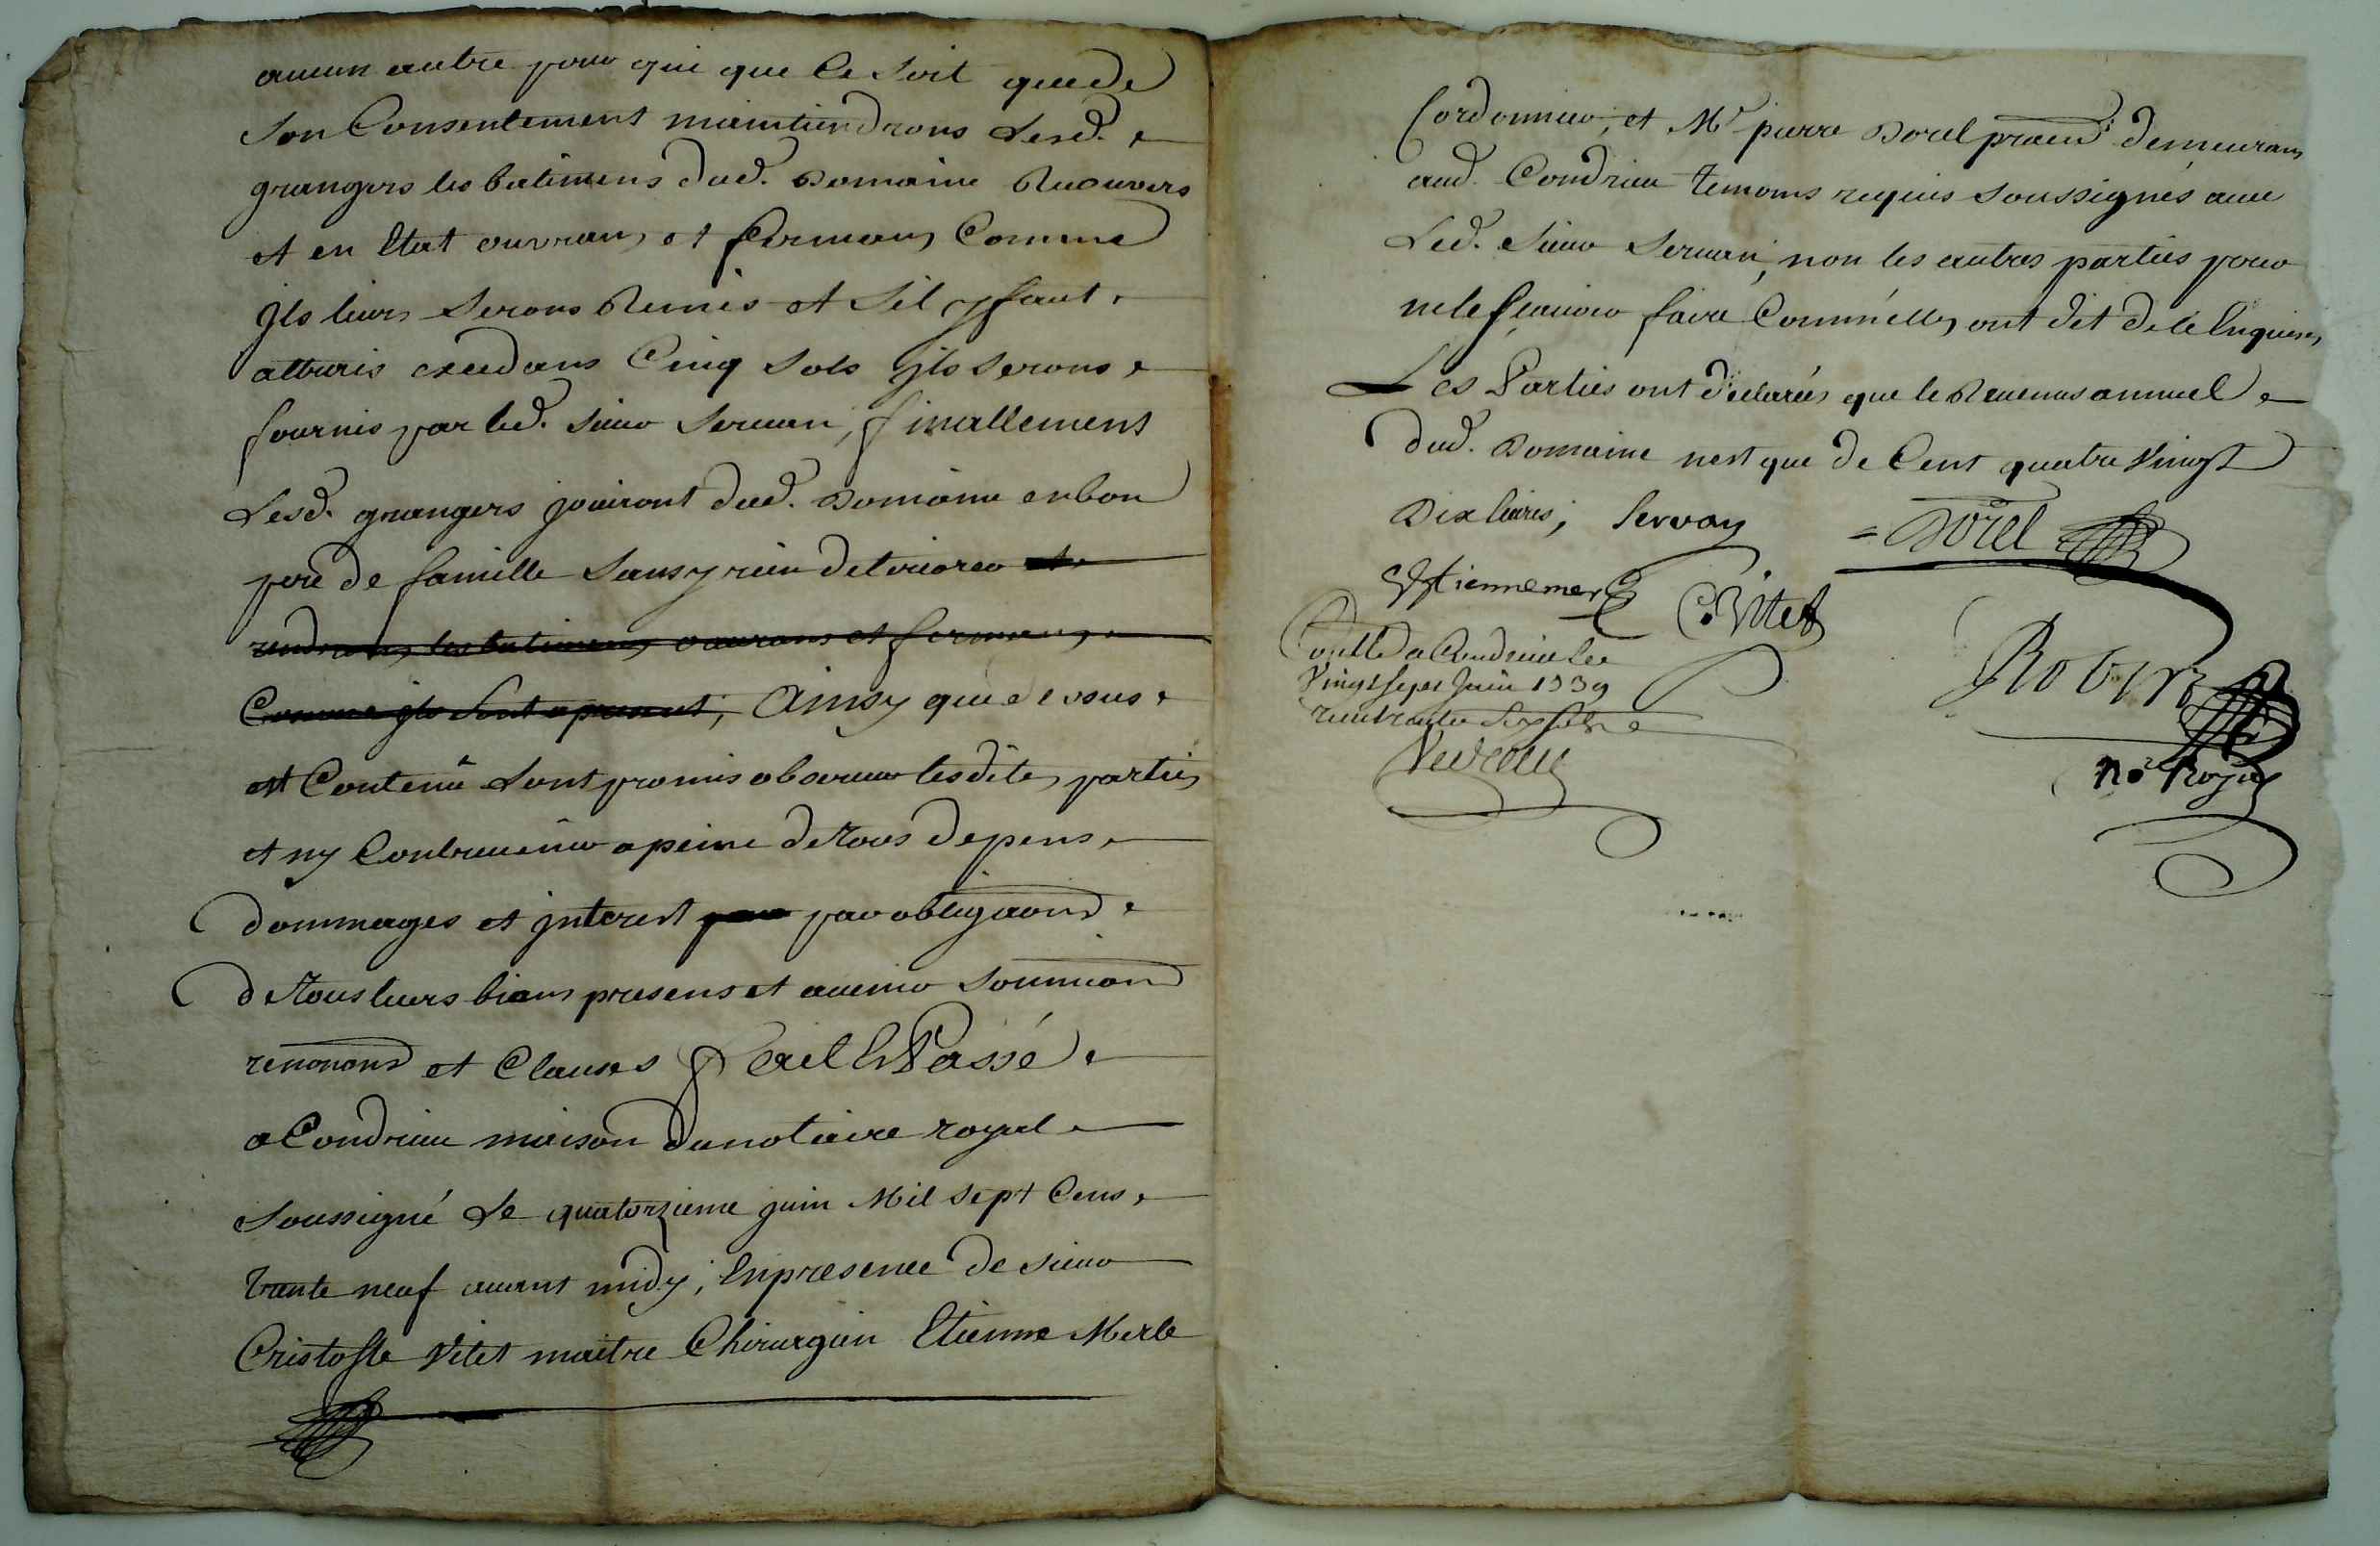 aucun autre pour qui que ce soit que de
son Consentement maintiendrons Lesd.
grangers les batimens dud. Domaine Recouvers
et en Etat ouvrans et fermans Comme
jls leurs serons Remis et sil y faut
attraits exedans Cinq sols jls serons
fournis par led. sieur Servan, finallement
Lesd. grangers jouiront dud. Domaine en bon
pere de famille sans y rien deteriorer et
rendrons les batimens ouvrans et fermans
Comme jls sont a present, Ainsy que dessus
est Contenü sont promis observer lesdites parties
et ny Contrevenir a peine de tous depens
dommages et jnterest pour par obligaons
de tous leurs biens presens et avenir soumions
renonons et Clauses fait et Passé
a Condrieu maison du notaire royal
soussigné Le quatorzieme juin Mil sept Cens
trante neuf avant midy, en presence de sieur
Cristofle Vitet maitre Chirurgien Etienne Merle
Cordonnier, et Mr pierre Dorel praticn demeurans
aud. Condrieu temoins requis soussignés avec
Led. sieur Servan, non les autres parties pour
ne le sçavoir faire Comm'elles ont dit de ce Enquises
Les Parties ont declarées que le Revenus annuel
dud. Domaine nest que de Cent quatre Vingt
Dix livres, Servan = Dorel
Estienne merle C. Vitet
Conllé a Condrieu le
Vingt sept Juin 1739
Robin
no Royal